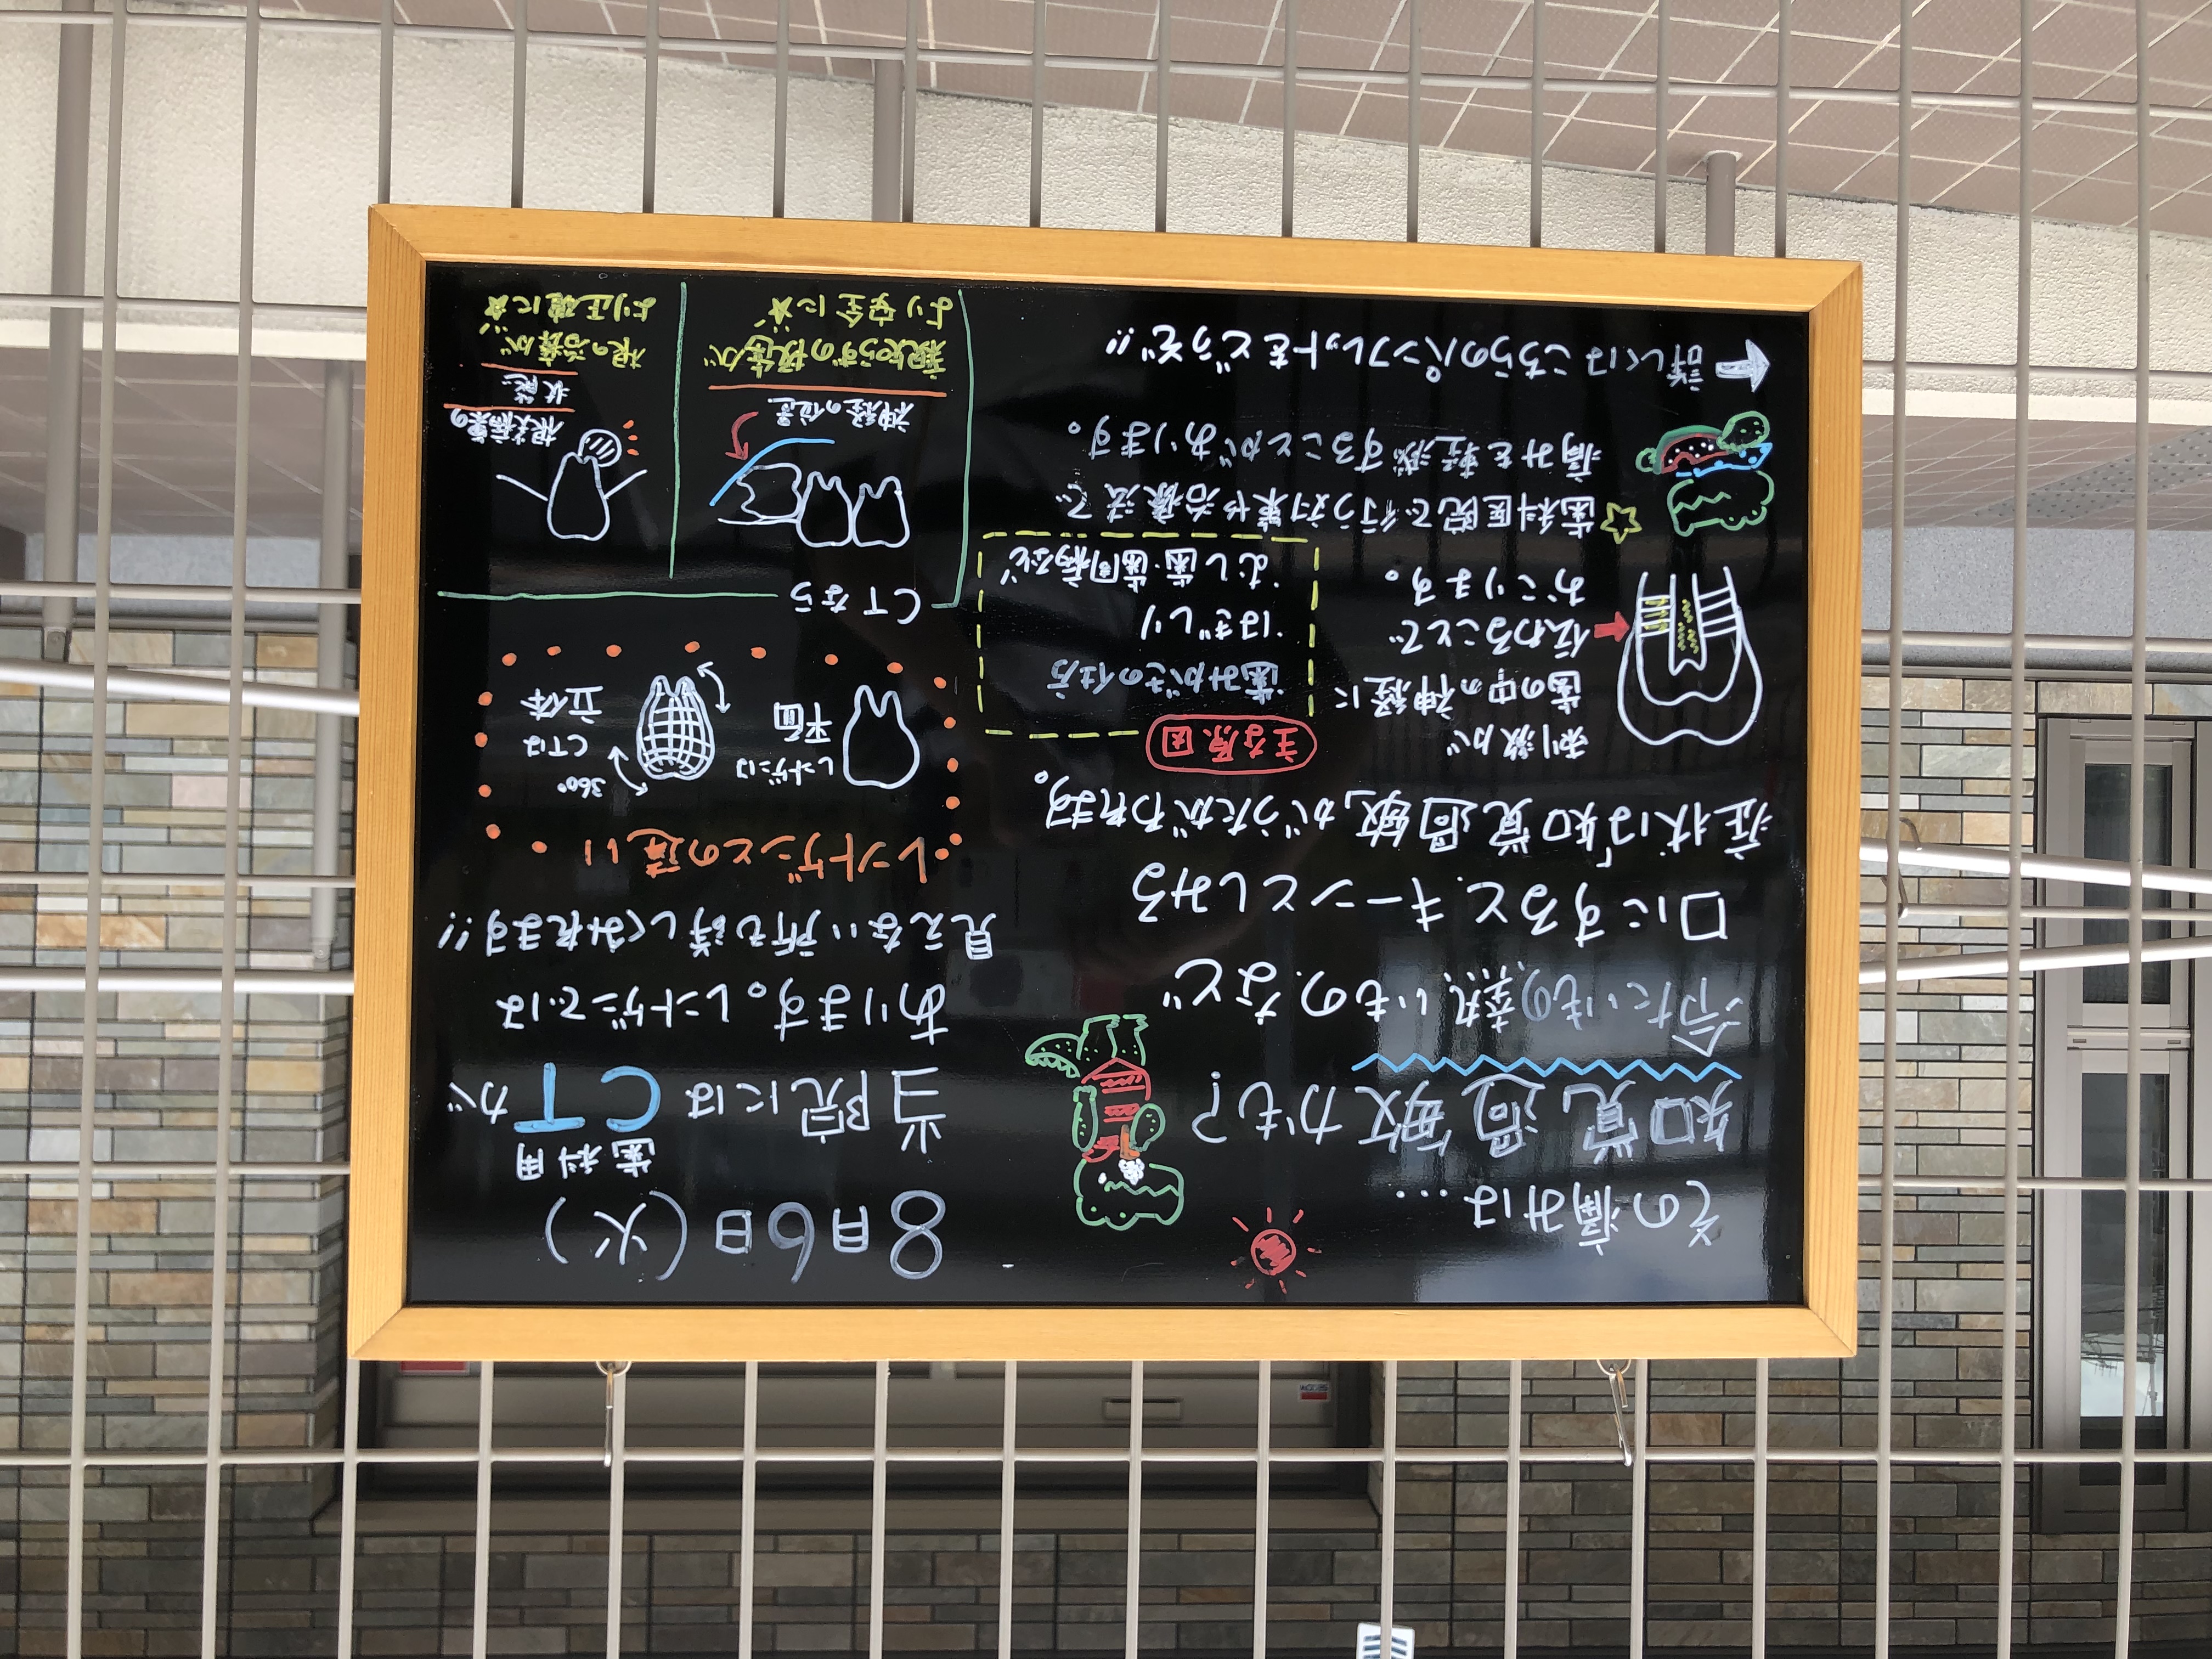 その痛みは…
知覚過敏かも?
冷たいもの、熱いもの、など
口にすると、キーンとしみる
症状は「知覚過敏」がうたがわれます。
刺激が
歯の中の神経に
伝わることで
おこります。
主な原因
・歯みがきの仕方
・はぎしり
・むし歯・歯周病など
☆歯科医院で行う対策や治療法で
痛みを軽減することがあります。
← 詳しくはこちらのパンフレットをどうぞ!!
8月6日(火)
歯科用
当院にはCTが
あります。レントゲンでは
見えない所も詳しくみれます!!
レントゲンとの違い
レントゲンは
平面
360°
CTは
立体
CTなら
神経の位置
親知らずの抜歯が
より安全に☆
根尖病巣の
状態
根の治療が
より正確に☆
SECOM